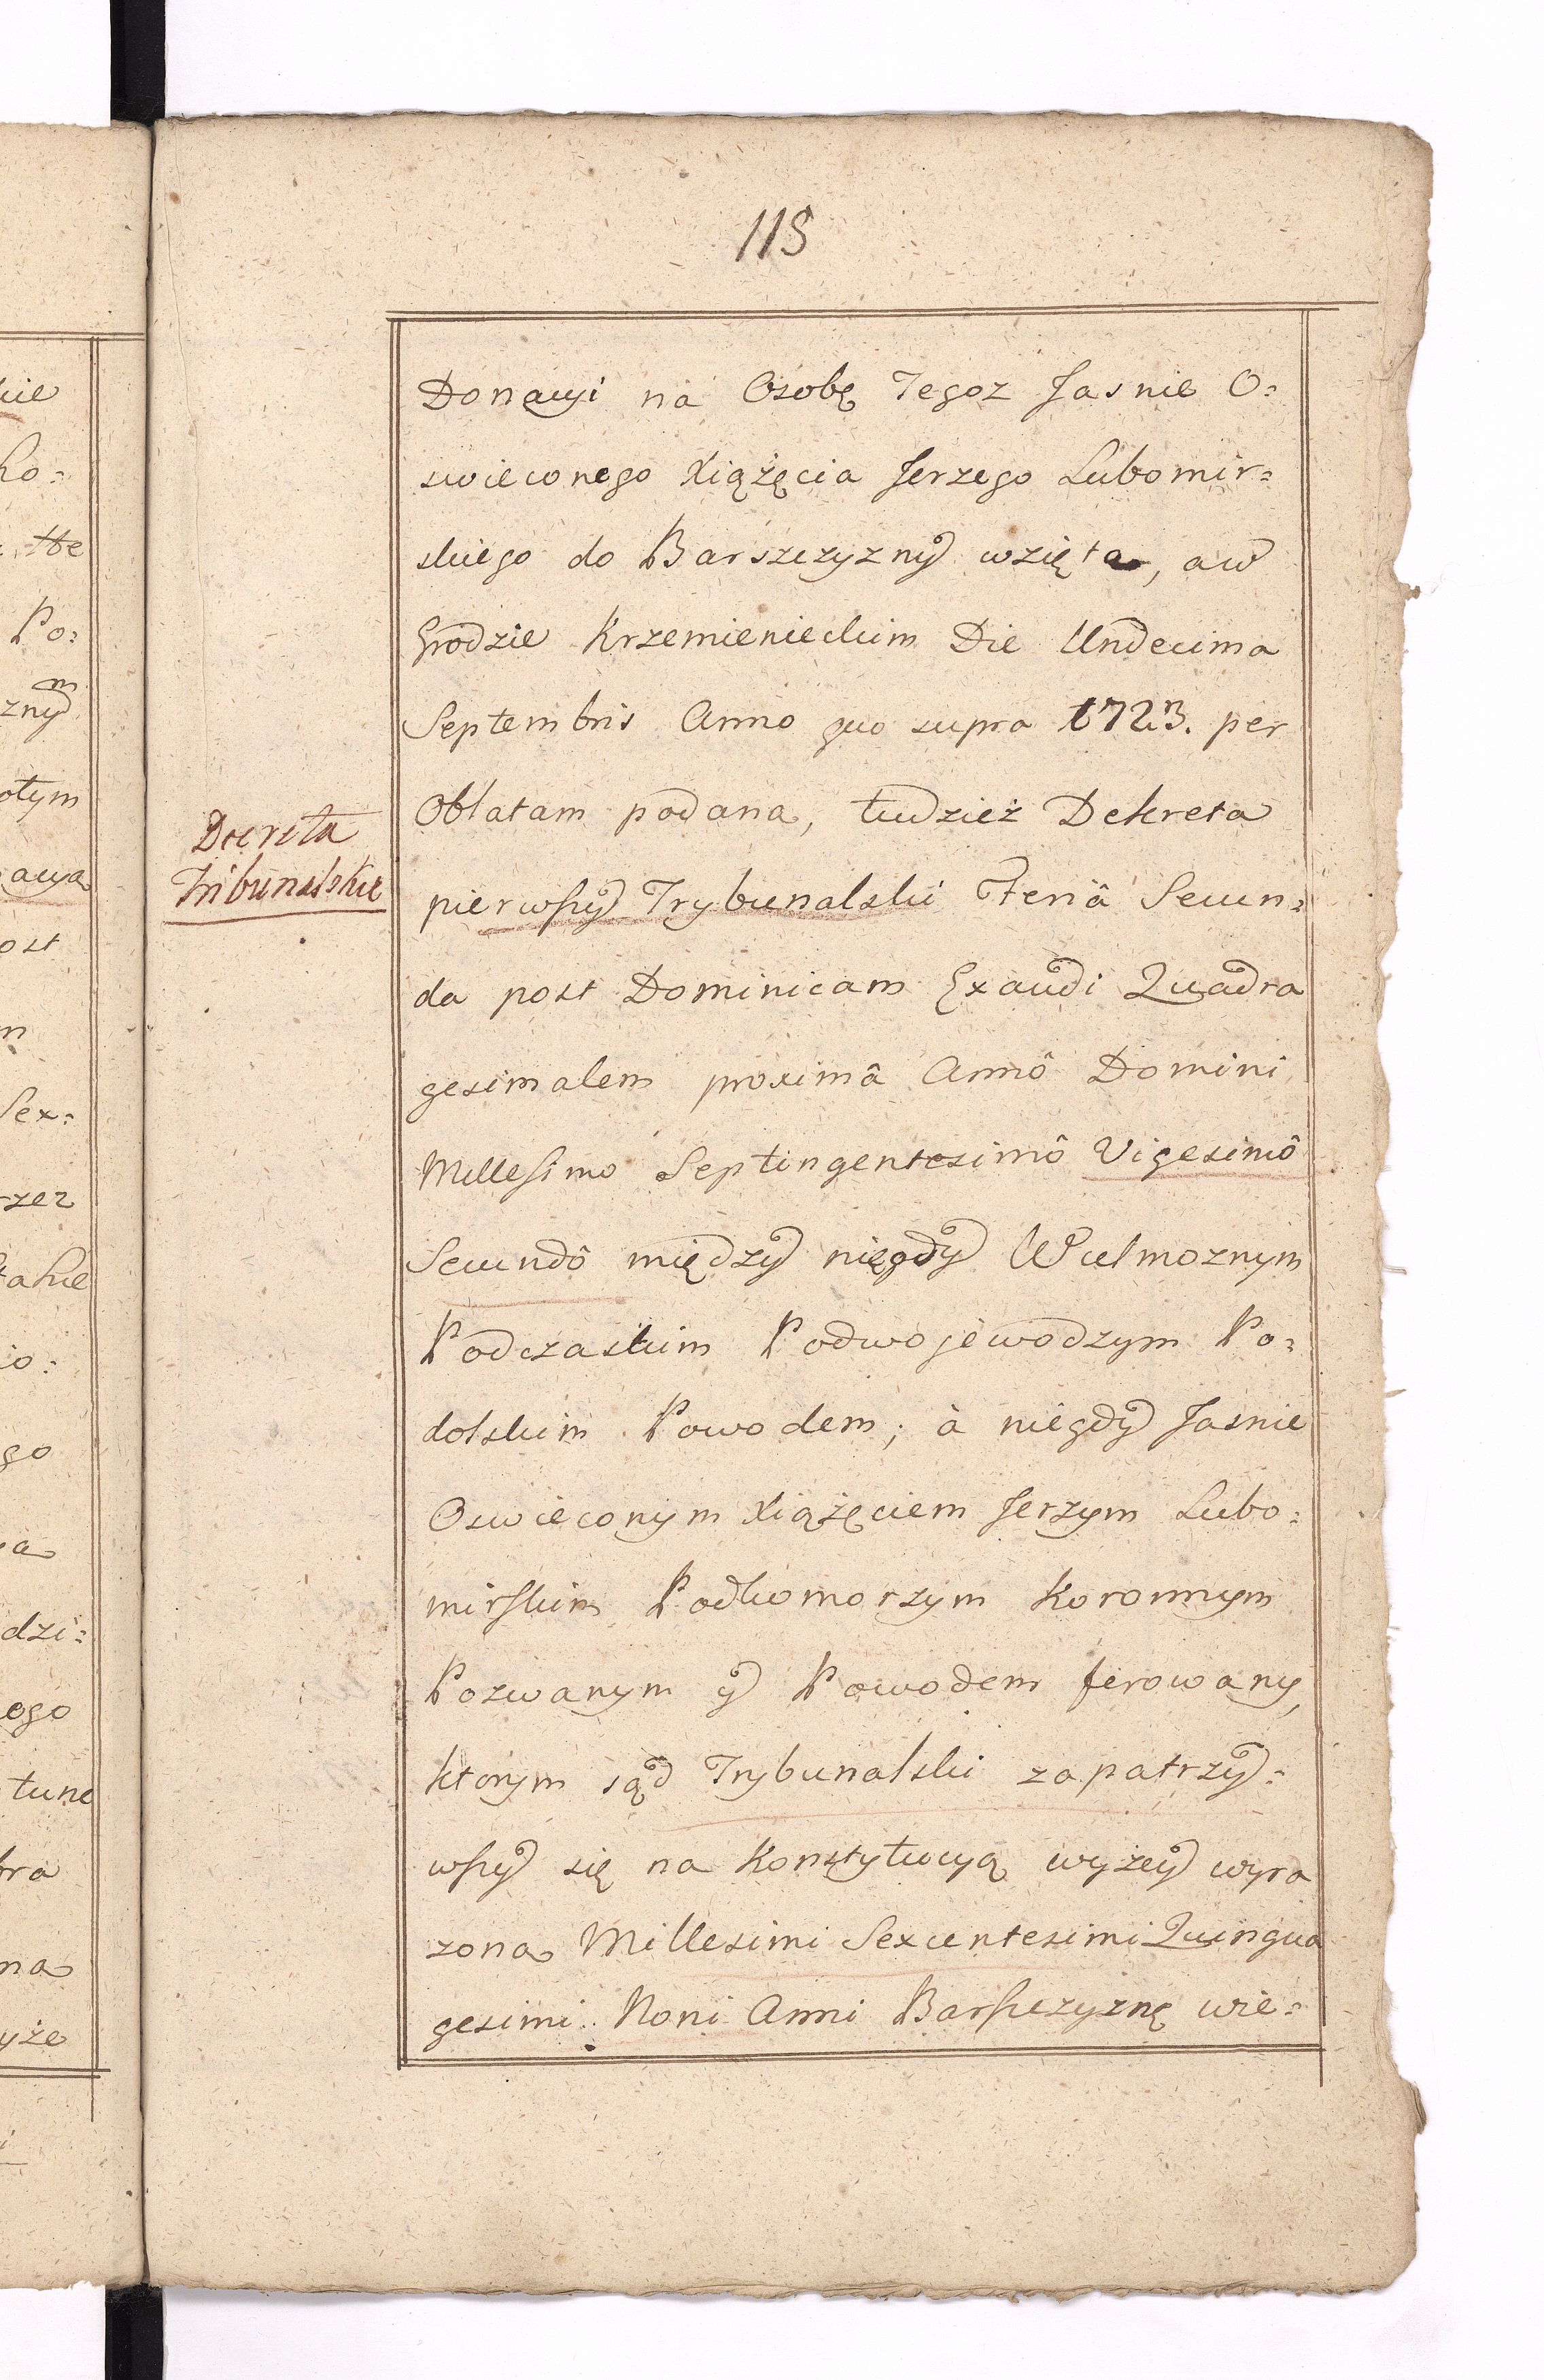 115
Donacyi na Osobę Tegoz Jasnie O=
swieconego Xiążęcia Jerzego Lubomir=
skiego do Barszczyzny wzięta, aw
Grodzie Krzemienieckim Die Undecima
Septembris Anno quo supra 1723. per
Oblatam podana, tudzież Dekreta
pierwszy Trybunalski Feriâ Secun=
da post Dominicam Exaudi Quadra
gesimalem proximâ Annô Domini
Millesimo Septingentesimô Vigesimô
Secundô między niegdy Wielmoznym
Podczaskim Podwojewodzym Po=
dolskim Powodem; à niegdy Jasnie
Oswieconym Xiążęciem Jerzym Lubo=
mirskim Podkomorzym Koronnym
Pozwanym y Powodem ferowany,
ktorym sąd Trybunalski zapatrzy=
wszy się na Konstytucyą wyzey wyra
zoną Millesimi Sexcentesimi Quinqua
gesimi Noni Anni Barszczyznę wie=
Decreta
Tribunalskie